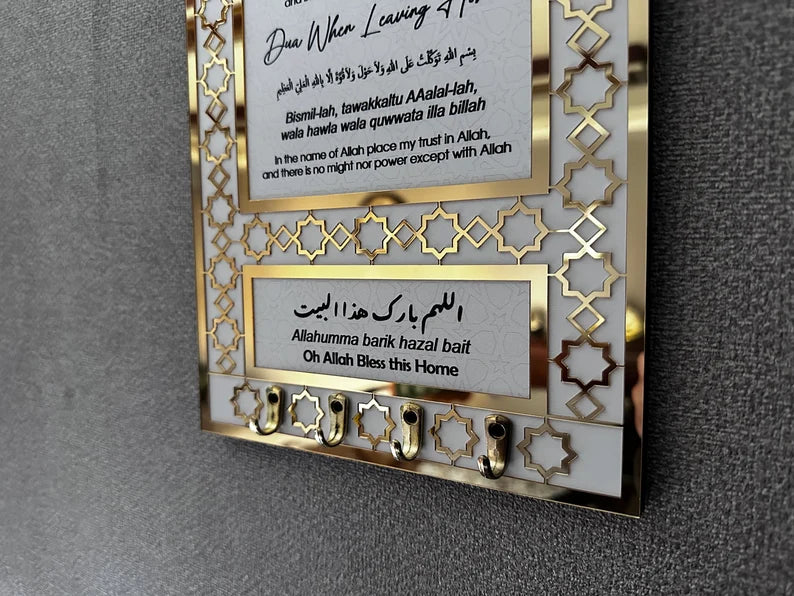 Dua When Leaving
بِسْمِ اللهِ تَوَكَّلْتُ عَلَى اللهِ وَلَا حَوْلَ وَلَا قُوَّةَ إِلَّا بِاللهِ الْعَلِيِّ الْعَظِيمِ
Bismil-lah, tawakkaltu AAalal-lah,
wala hawla wala quwwata illa billah
In the name of Allah place my trust in Allah,
and there is no might nor power except with Allah
اللهم بارك هذا البيت
Allahumma barik hazal bait
Oh Allah Bless this Home